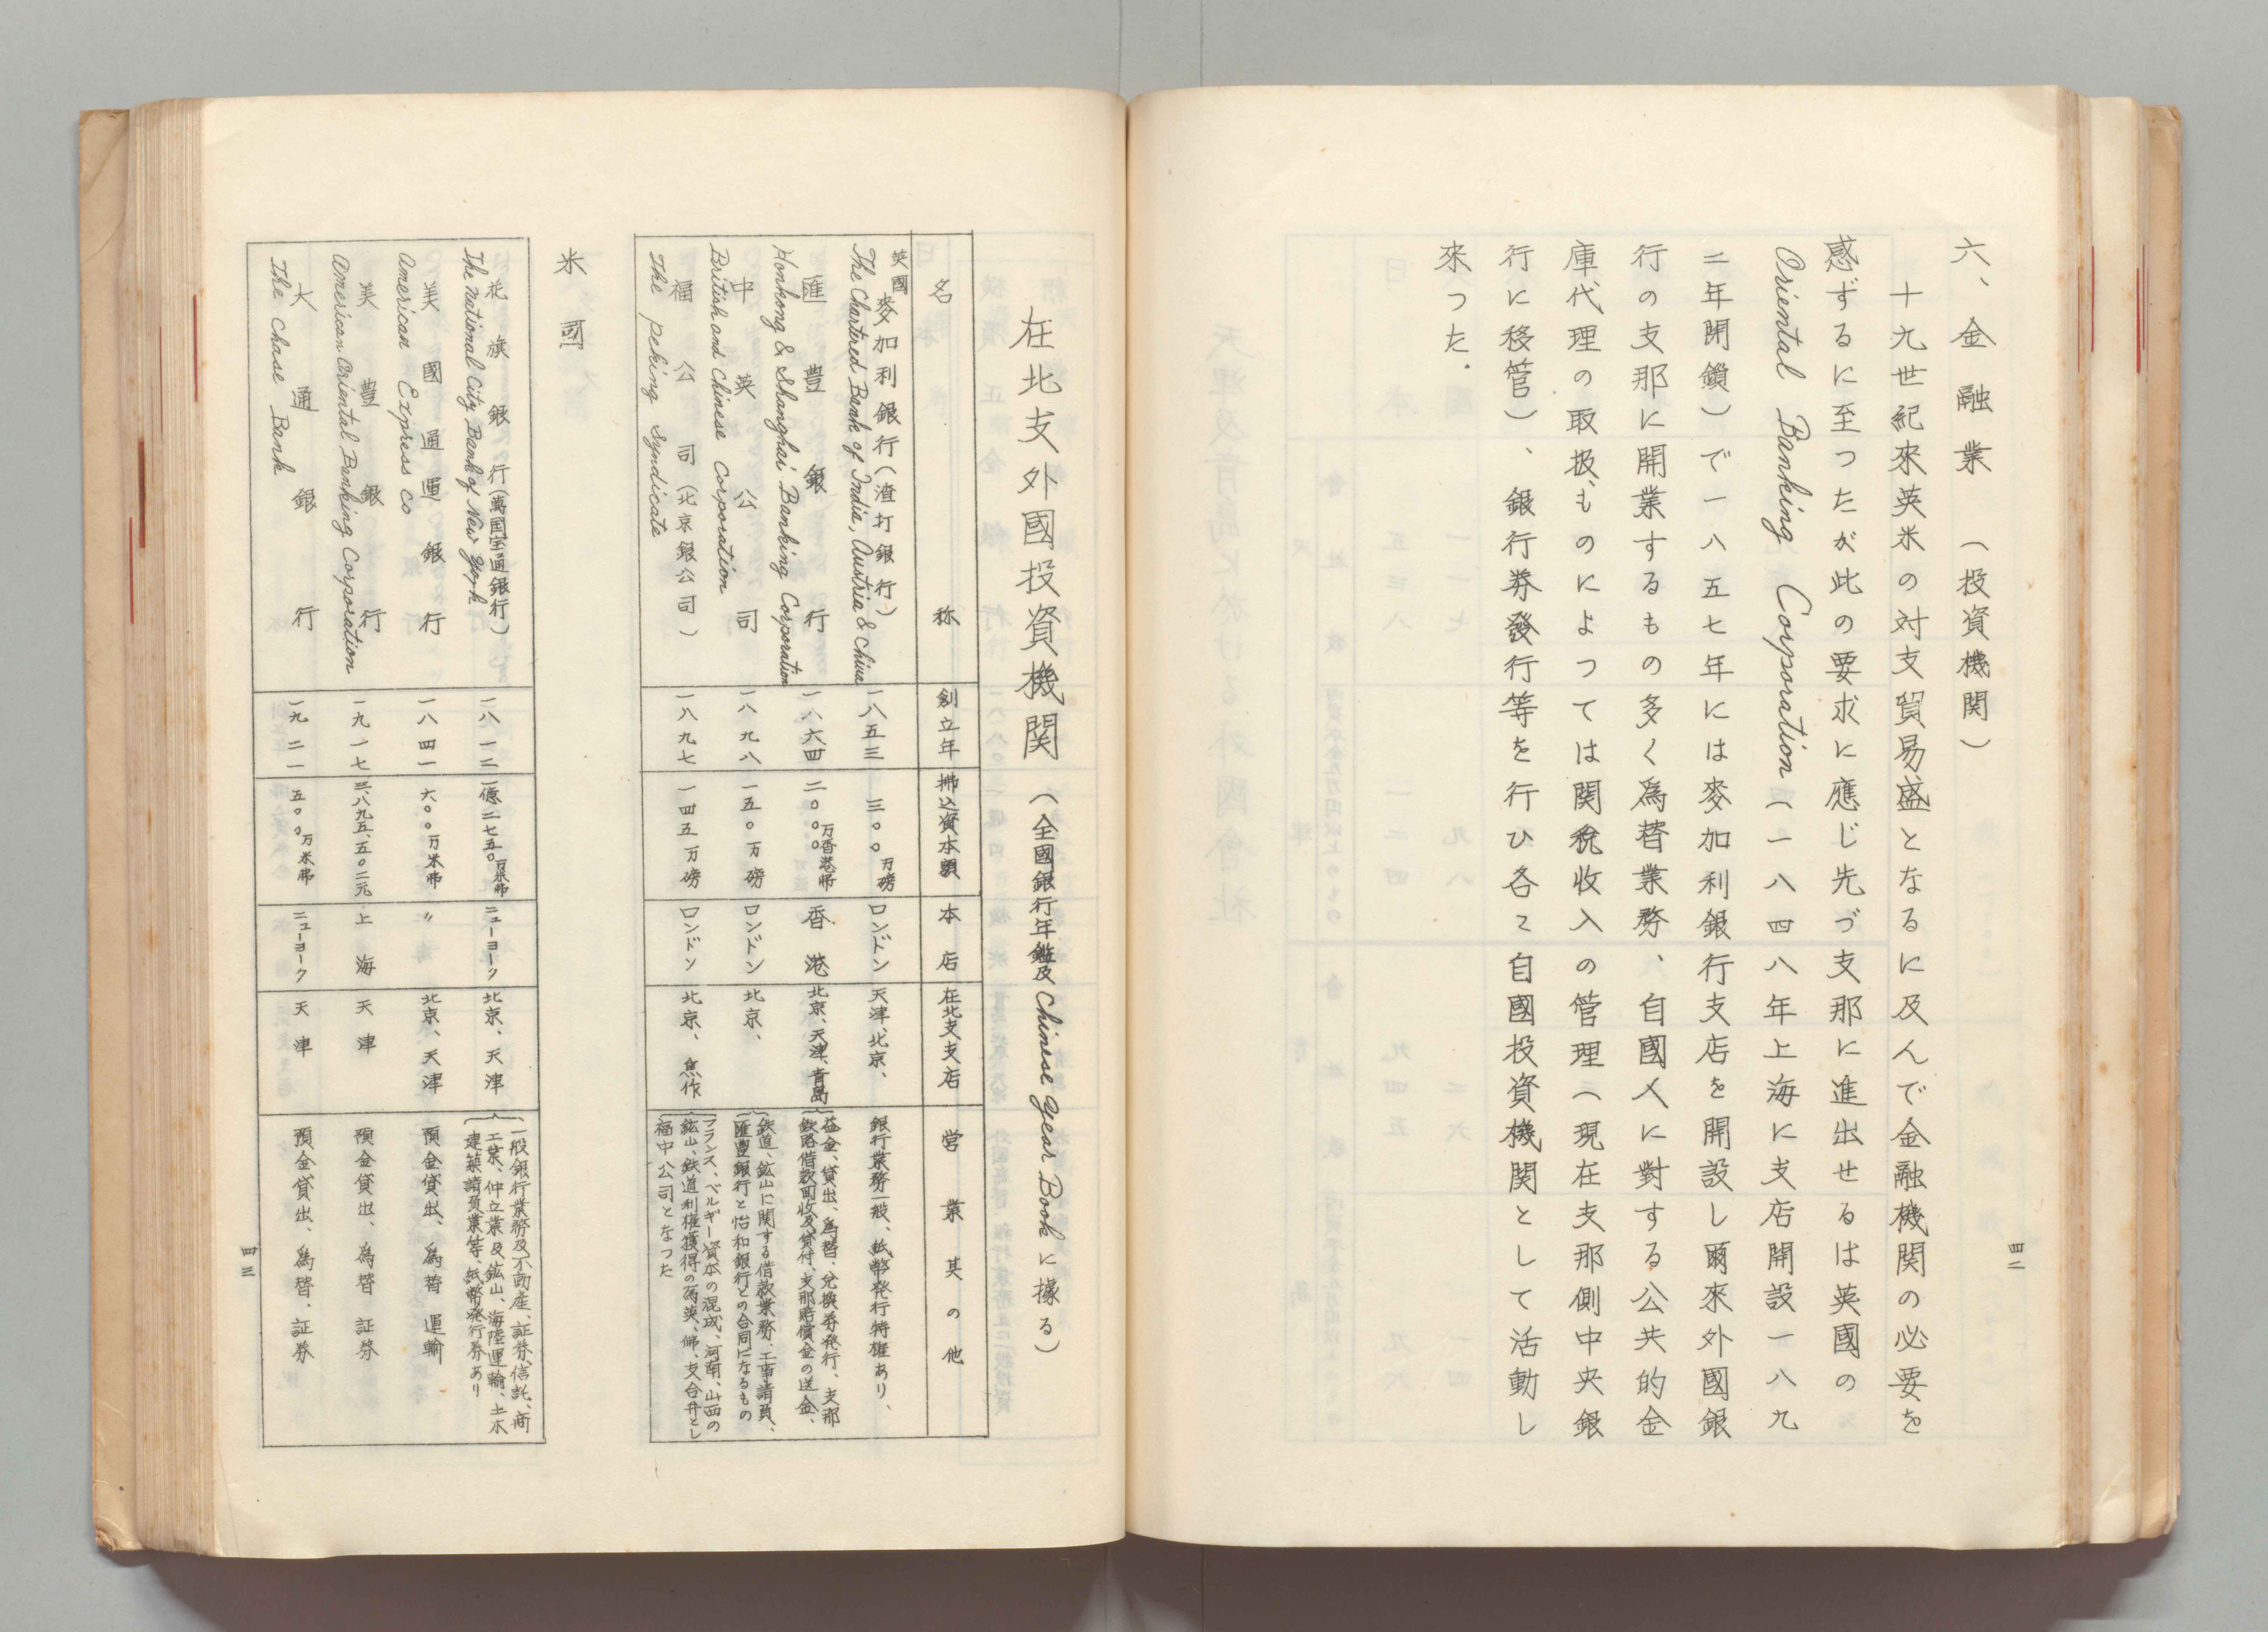 六、金融業（投資機関）
十九世紀來英米の対支貿易盛となるに及んで金融機関の必要を
感ずるに至つたが此の要求に應じ先づ支那に進出せるは英國の
Oriental Banking Corporation（一八四八年上海に支店開設一八九
二年閉鎖）で一八五七年には麥加利銀行支店を開設し爾來外國銀
行の支那に開業するもの多く為替業務、自國人に對する公共的金
庫代理の取扱、ものによつては関税收入の管理（現在支那側中央銀
行に移管）、銀行券發行等を行ひ各〻自國投資機関として活動し
來つた.
四二
在北支外國投資機関（全國銀行年鑑及 Chinese Year Book に據る）
名称 創立年 拂込資本額 本店 在北支支店 営業其の他
英國
麥加利銀行（渣打銀行） 一八五三 三〇〇万磅 ロンドン 天津、北京、 銀行業務一般、紙幣発行特権あり、
The Chartered Bank of India, Austria & China
匯豊銀行 一八六四 二〇〇〇万香港弗 香港 北京、天津、青島 益金、貸出、為替、兌換券発行、支那
鉄路借款回收及貸付、支那賠償金の送金、
Honkong & Shanghai Banking Corporation
中英公司 一八九八 一五〇万磅 ロンドン 北京、 鉄道、鉱山に関する借款業務.工事請負、
匯豊銀行と怡和銀行との合同になるもの
British and Chinese Corporation
福公司（北京銀公司） 一八九七 一四五万磅 ロンドン 北京、焦作 フランス、ベルギー資本の混成、河南、山西の
鉱山、鉄道利権獲得の為英、佛、支合弁とし
福中公司となつた
The Peking Syndicate
米國
花旗銀行（萬国宝通銀行） 一八一二 一億二七五〇万米弗 ニューヨーク 北京、天津 一般銀行業務及不動産、証券、信託、商
工業、仲立業及鉱山、海陸運輸、土木
建築請負業等、紙幣発行券あり
The National City Bank of New York
美國通運銀行 一八四一 六〇〇万米弗 〃 北京、天津 預金貸出、為替 運輸
American Express Co
美豊銀行 一九一七 三、八九五、五〇二元. 上海 天津 預金貸出、為替 証券
American Oriental Banking Corporation
大通銀行 一九二一 五〇〇万米弗 ニューヨーク 天津 預金貸出、為替、証券
The Chase Bank
四三